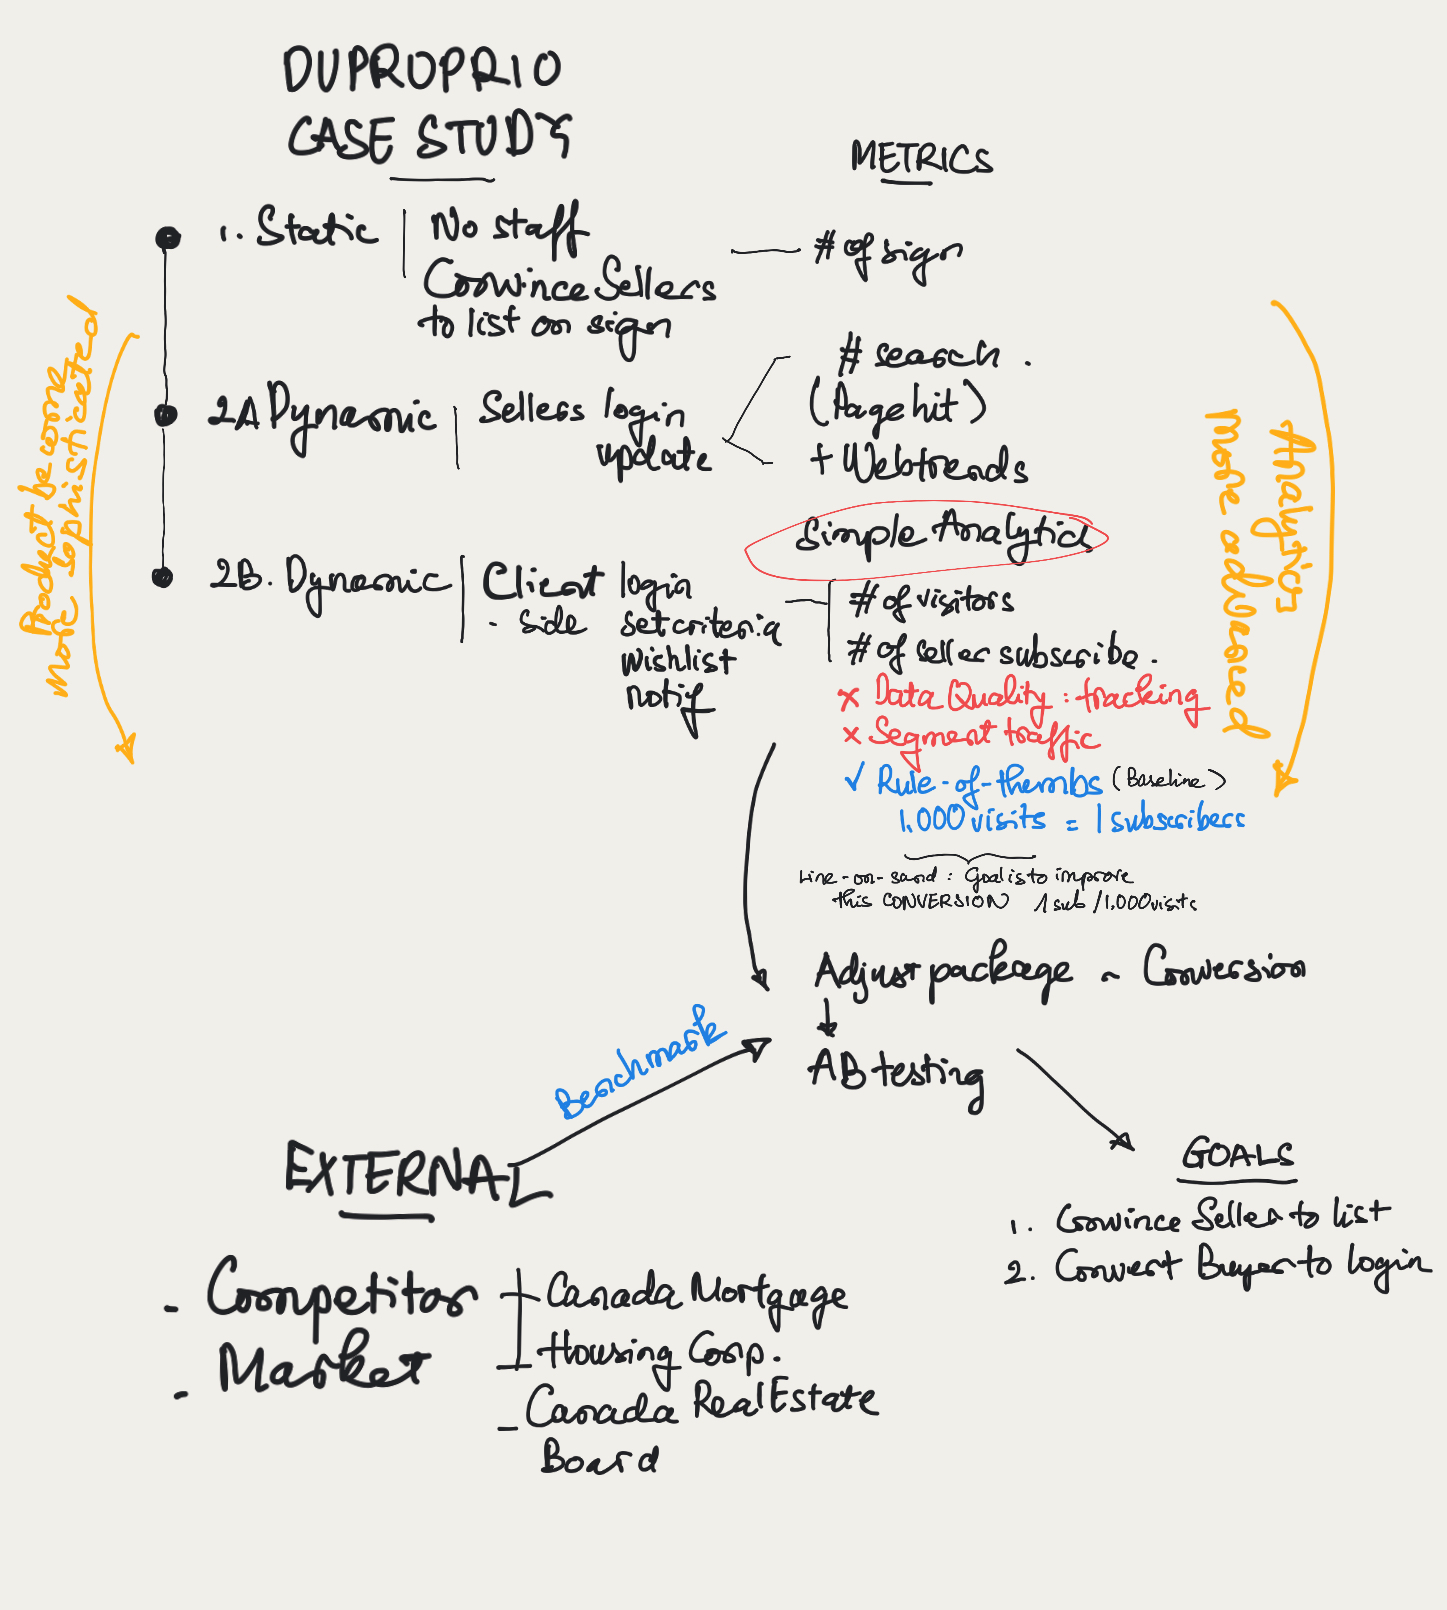 DUPROPRIO
CASE STUDY
METRICS
1. Static | No staff
Convince Sellers
to list on sign
# of sign
2A Dynamic | Sellers login
update
# search.
(Page hit)
+ Webtrends
Simple Analytics
2B. Dynamic | Client login
- side set criteria
wishlist
notif
# of visitors
# of seller subscribe.
x Data Quality : tracking
x Segment traffic
✓ Rule-of-thumbs (Baseline)
1.000 visits = 1 subscribers
Line-on-sand : Goal is to improve
this CONVERSION 1 sub / 1,000 visits
Product become
more sophisticated
Analytics
More advanced
Adjust package ~ Conversion
↓
AB testing
Benchmark
EXTERNAL
- Competitor
- Market
- Canada Mortgage
- Housing Corp.
- Canada Real Estate
Board
GOALS
1. Convince Seller to list
2. Convert Buyer to login